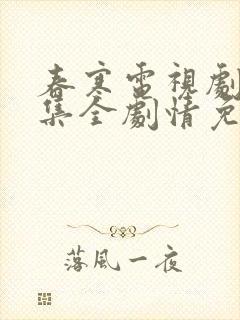 春寒電視劇
集全劇情免
落風一夜